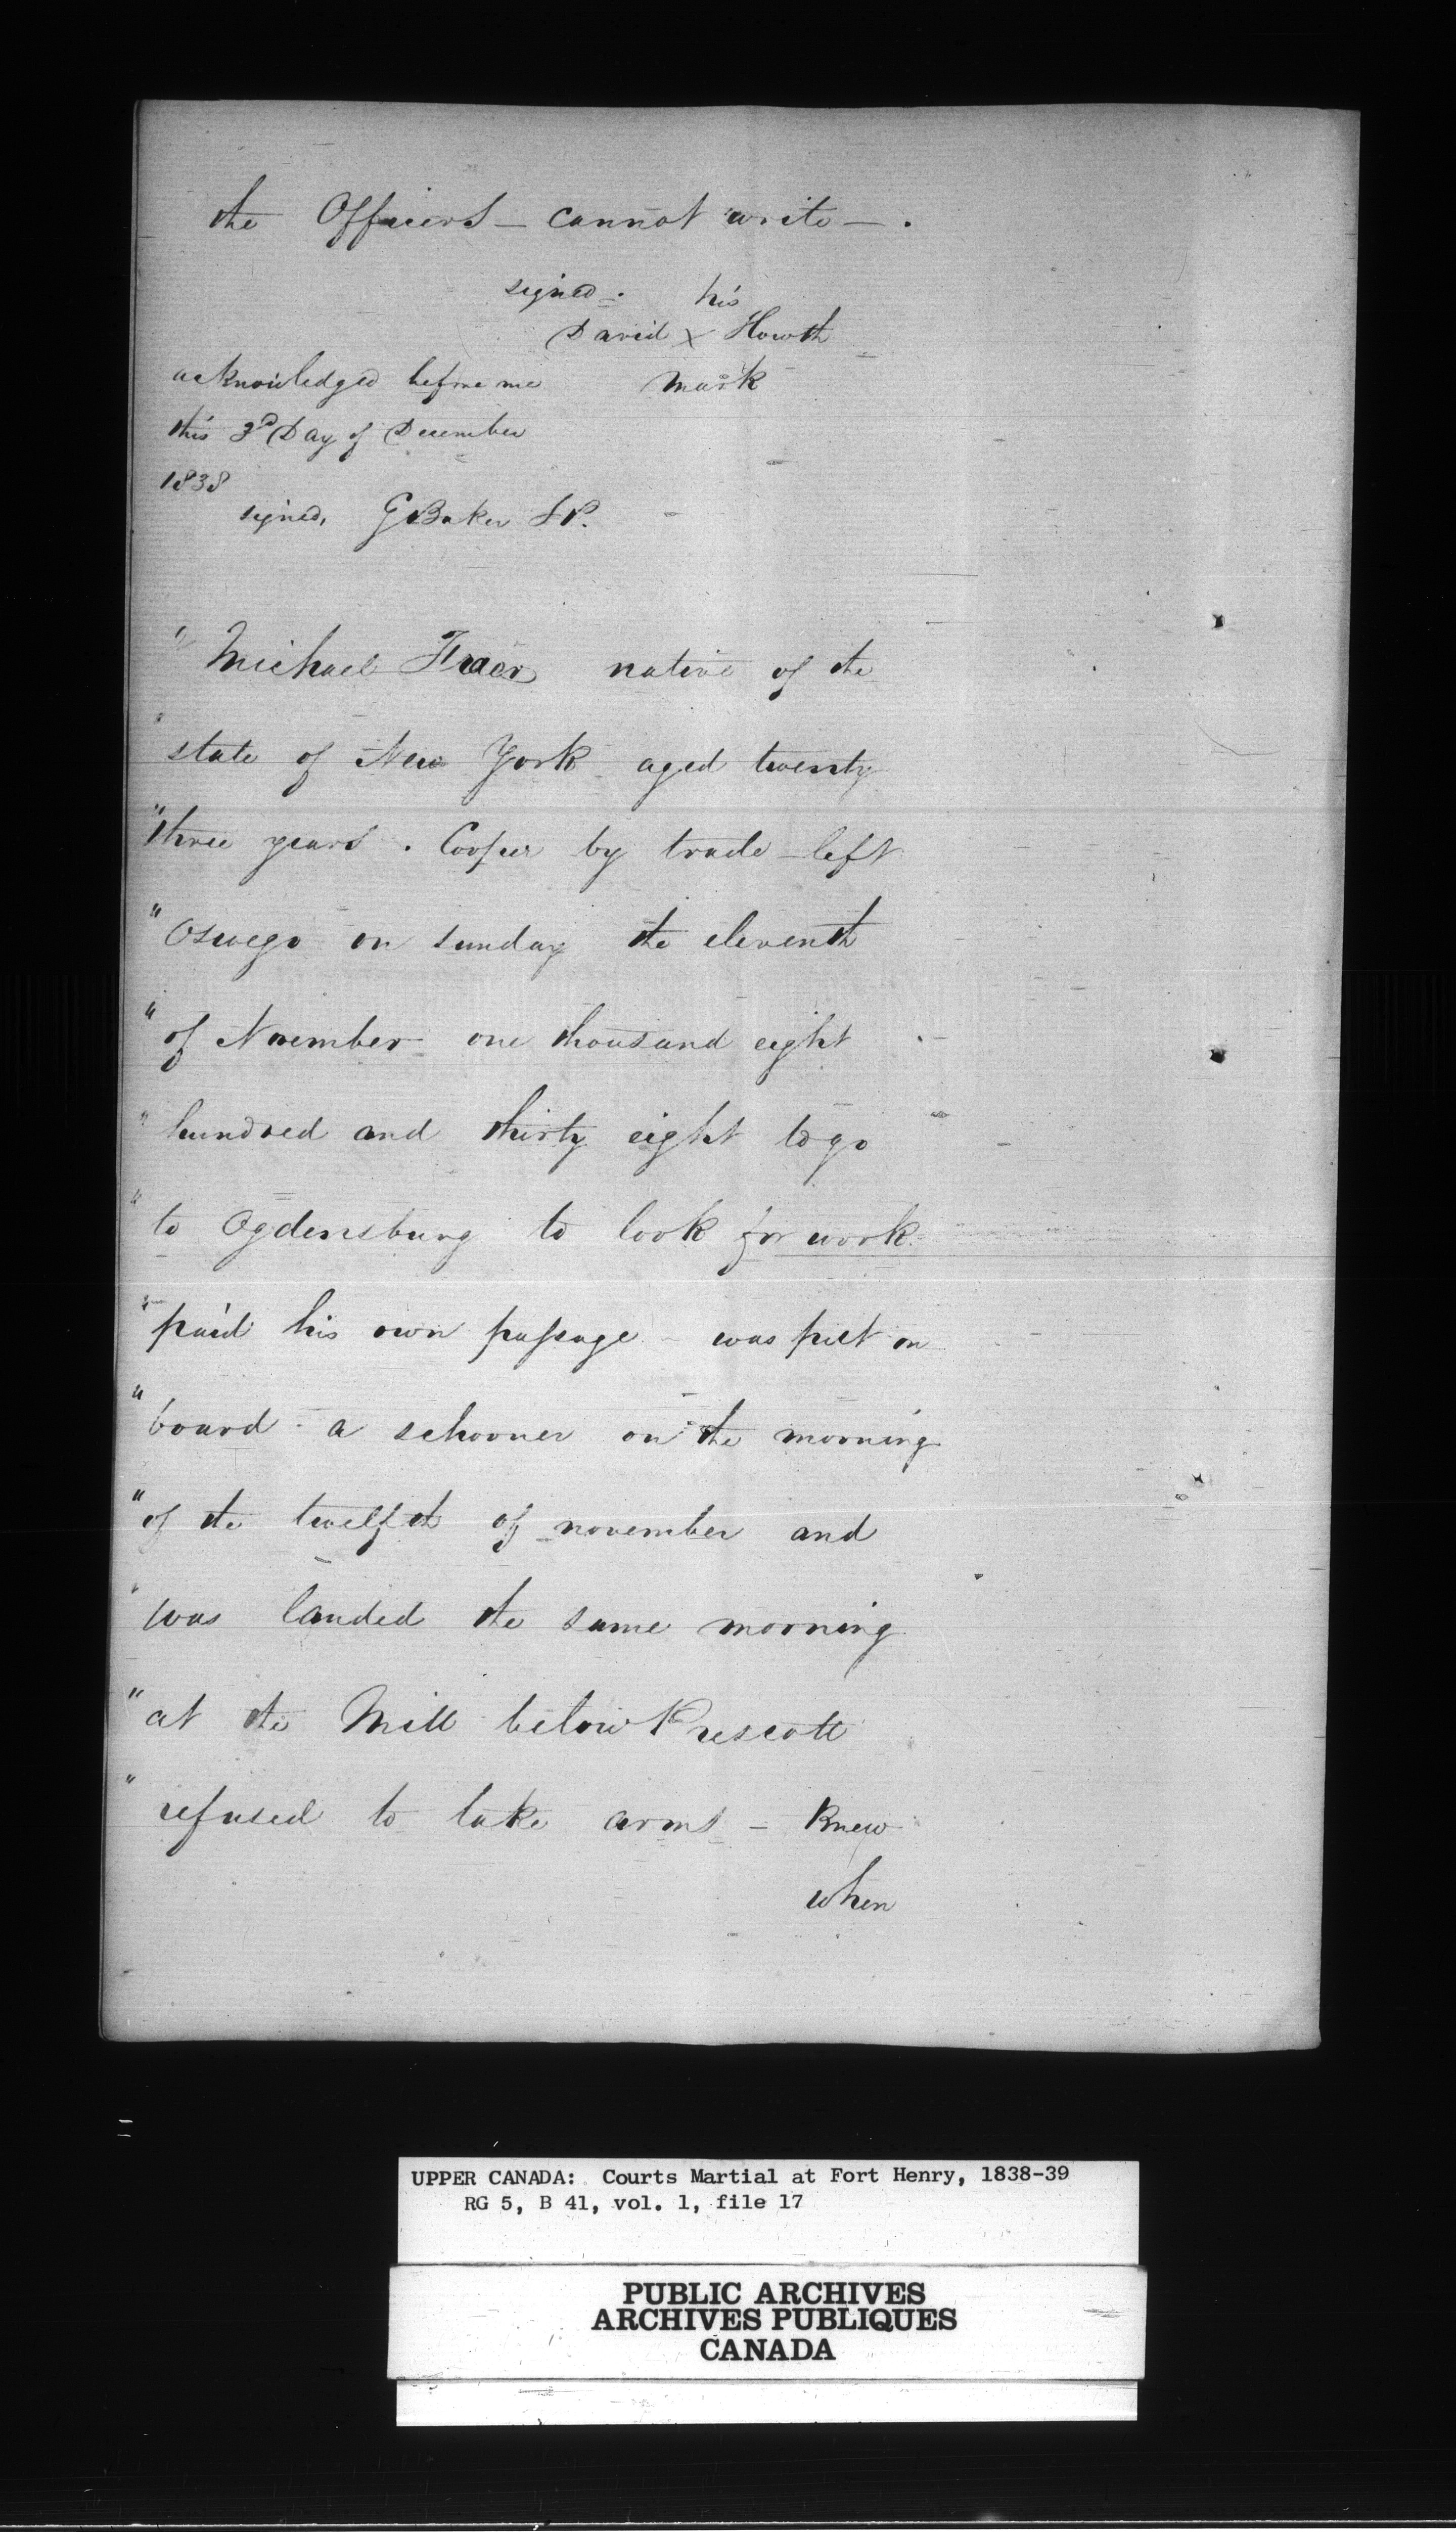 the Officers – cannot write – .
signed – . his
David X Howth
acknowledged before me mark
this 3d Day of December
1838
signed, G Baker J P.
" Michael Fraer native of the
" state of New York aged twenty
" three years . Cooper by trade – left
" Oswego on sunday the eleventh
" of November one thousand eight
" hundred and thirty eight to go
" to Ogdensburg to look for work
" paid his own passage – was put on
" board a schooner on the morning
" of the twelfth of november and
" was landed the same morning
" at the Mill below Prescott
" refused to take arms – Knew
when
UPPER CANADA: Courts Martial at Fort Henry, 1838-39
RG 5, B 41, vol. 1, file 17
PUBLIC ARCHIVES
ARCHIVES PUBLIQUES
CANADA